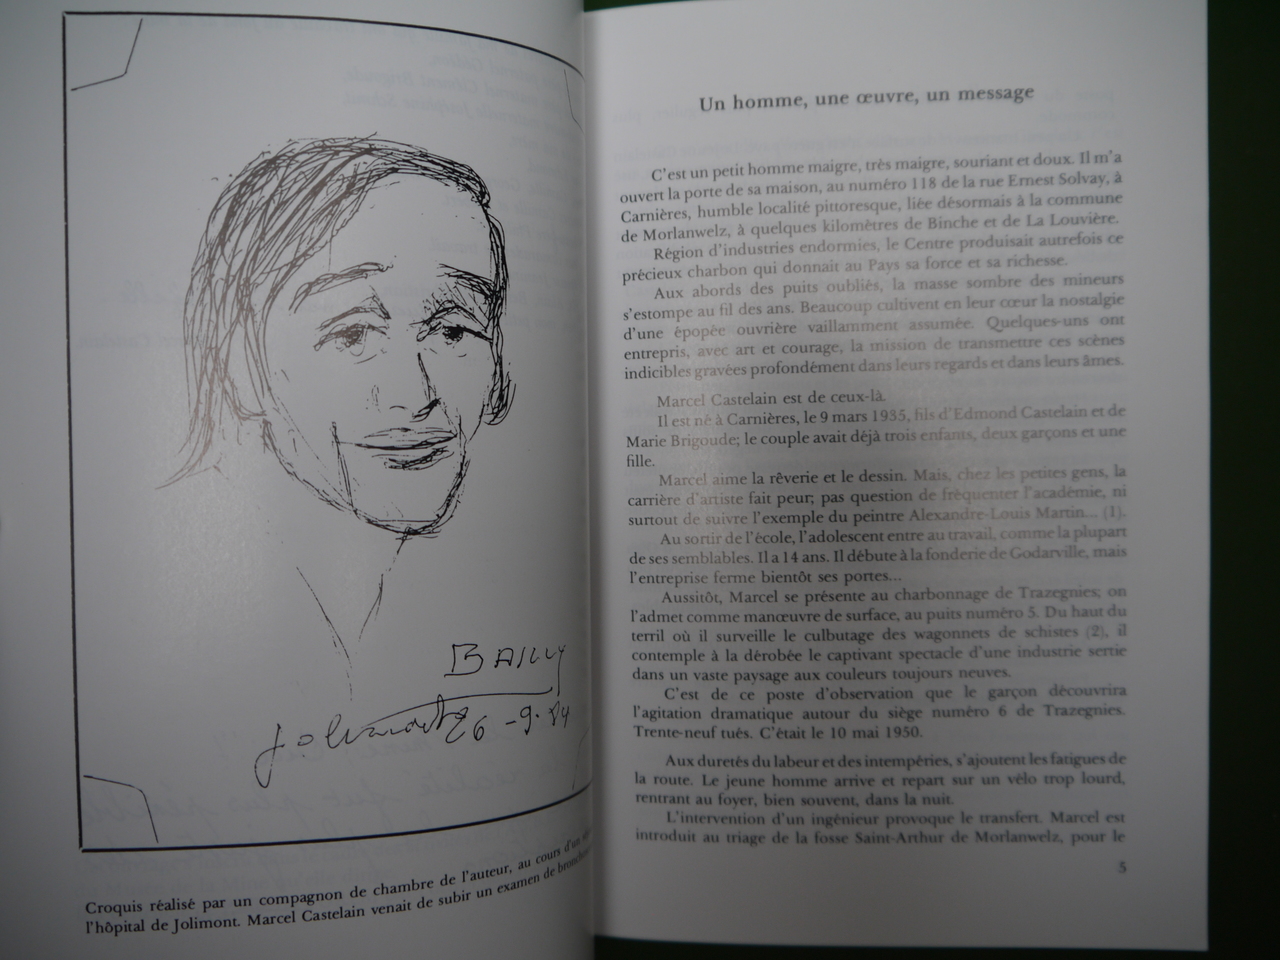 BAILLY
Jolimont 26-9-84
Croquis réalisé par un compagnon de chambre de l'auteur, au cours d'un
l'hôpital de Jolimont. Marcel Castelain venait de subir un examen de
Un homme, une œuvre, un message
C'est un petit homme maigre, très maigre, souriant et doux. Il m'a
ouvert la porte de sa maison, au numéro 118 de la rue Ernest Solvay, à
Carnières, humble localité pittoresque, liée désormais à la commune
de Morlanwelz, à quelques kilomètres de Binche et de La Louvière.
Région d'industries endormies, le Centre produisait autrefois ce
précieux charbon qui donnait au Pays sa force et sa richesse.
Aux abords des puits oubliés, la masse sombre des mineurs
s'estompe au fil des ans. Beaucoup cultivent en leur cœur la nostalgie
d'une épopée ouvrière vaillamment assumée. Quelques-uns ont
entrepris, avec art et courage, la mission de transmettre ces scènes
indicibles gravées profondément dans leurs regards et dans leurs âmes.
Marcel Castelain est de ceux-là.
Il est né à Carnières, le 9 mars 1935, fils d'Edmond Castelain et de
Marie Brigoude; le couple avait déjà trois enfants, deux garçons et une
fille.
Marcel aime la rêverie et le dessin. Mais, chez les petites gens, la
carrière d'artiste fait peur; pas question de fréquenter l'académie, ni
surtout de suivre l'exemple du peintre Alexandre-Louis Martin... (1).
Au sortir de l'école, l'adolescent entre au travail, comme la plupart
de ses semblables. Il a 14 ans. Il débute à la fonderie de Godarville, mais
l'entreprise ferme bientôt ses portes...
Aussitôt, Marcel se présente au charbonnage de Trazegnies; on
l'admet comme manœuvre de surface, au puits numéro 5. Du haut du
terril où il surveille le culbutage des wagonnets de schistes (2), il
contemple à la dérobée le captivant spectacle d'une industrie sertie
dans un vaste paysage aux couleurs toujours neuves.
C'est de ce poste d'observation que le garçon découvrira
l'agitation dramatique autour du siège numéro 6 de Trazegnies.
Trente-neuf tués. C'était le 10 mai 1950.
Aux duretés du labeur et des intempéries, s'ajoutent les fatigues de
la route. Le jeune homme arrive et repart sur un vélo trop lourd,
rentrant au foyer, bien souvent, dans la nuit.
L'intervention d'un ingénieur provoque le transfert. Marcel est
introduit au triage de la fosse Saint-Arthur de Morlanwelz, pour le
5